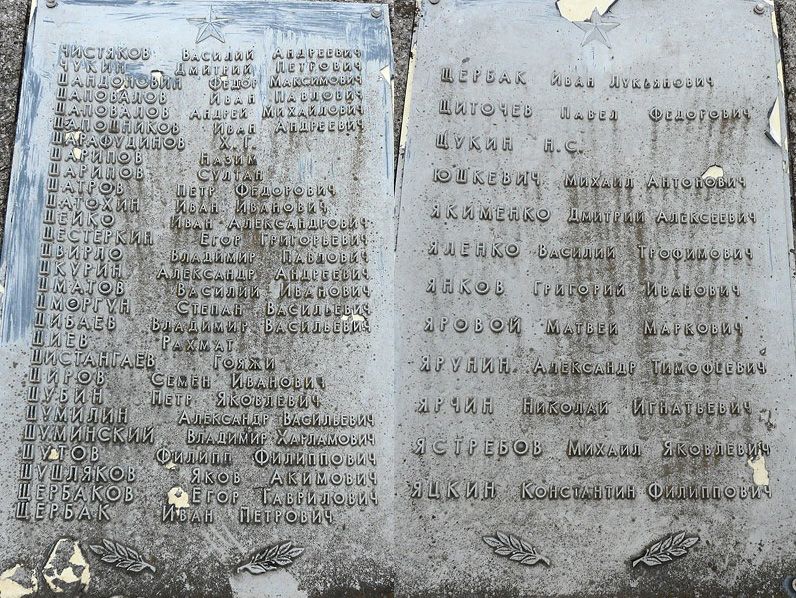 ЧИСТЯКОВ ВАСИЛИЙ АНДРЕЕВИЧ
ЧУКИН ДМИТРИЙ ПЕТРОВИЧ
ШАНДОЛОВИН ФЕДОР МАКСИМОВИЧ
ШАПОВАЛОВ ИВАН ПАВЛОВИЧ
ШАПОВАЛОВ АНДРЕЙ МИХАЙЛОВИЧ
ШАПОШНИКОВ ИВАН АНДРЕЕВИЧ
ШАРАФУДИНОВ Х. Г.
ШАРИПОВ НАЗИМ
ШАРИПОВ СУЛТАН
ШАТРОВ ПЕТР ФЕДОРОВИЧ
ШАТОХИН ИВАН ИВАНОВИЧ
ШЕЙКО ИВАН АЛЕКСАНДРОВИЧ
ШЕСТЕРКИН ЕГОР ГРИГОРЬЕВИЧ
ШВИРЛО ВЛАДИМИР ПАВЛОВИЧ
ШКУРИН АЛЕКСАНДР АНДРЕЕВИЧ
ШМАТОВ ВАСИЛИЙ ИВАНОВИЧ
ШМОРГУН СТЕПАН ВАСИЛЬЕВИЧ
ШИБАЕВ ВЛАДИМИР ВАСИЛЬЕВИЧ
ШИЕВ РАХМАТ
ШИСТАНГАЕВ ГОЯЖИ
ШИРОВ СЕМЕН ИВАНОВИЧ
ШУБИН ПЕТР ЯКОВЛЕВИЧ
ШУМИЛИН АЛЕКСАНДР ВАСИЛЬЕВИЧ
ШУМИНСКИЙ ВЛАДИМИР ХАРЛАМОВИЧ
ШУТОВ ФИЛИПП ФИЛИППОВИЧ
ШУШЛЯКОВ ЯКОВ АКИМОВИЧ
ЩЕРБАКОВ ЕГОР ГАВРИЛОВИЧ
ЩЕРБАК ИВАН ПЕТРОВИЧ
ЩЕРБАК ИВАН ЛУКЬЯНОВИЧ
ЩИТОЧЕВ ПАВЕЛ ФЕДОРОВИЧ
ЩУКИН Н.С.
ЮШКЕВИЧ МИХАИЛ АНТОНОВИЧ
ЯКИМЕНКО ДМИТРИЙ АЛЕКСЕЕВИЧ
ЯЛЕНКО ВАСИЛИЙ ТРОФИМОВИЧ
ЯНКОВ ГРИГОРИЙ ИВАНОВИЧ
ЯРОВОЙ МАТВЕЙ МАРКОВИЧ
ЯРУНИН АЛЕКСАНДР ТИМОФЕЕВИЧ
ЯРЧИН НИКОЛАЙ ИГНАТЬЕВИЧ
ЯСТРЕБОВ МИХАИЛ ЯКОВЛЕВИЧ
ЯЦКИН КОНСТАНТИН ФИЛИППОВИЧ